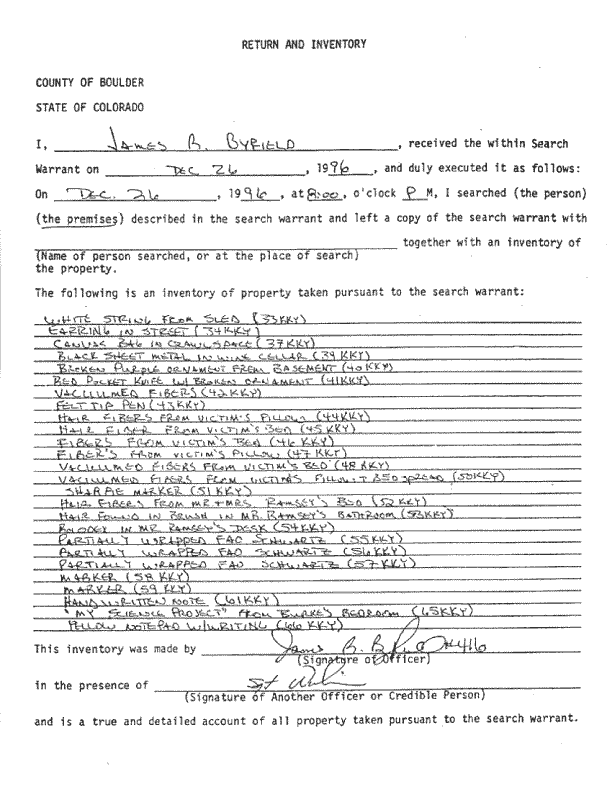 RETURN AND INVENTORY
COUNTY OF BOULDER
STATE OF COLORADO
I, JAMES R. BYFIELD, received the within Search
Warrant on DEC 26, 1996, and duly executed it as follows:
On DEC. 26, 1996, at 8:00, o'clock P M, I searched (the person)
(the premises) described in the search warrant and left a copy of the search warrant with
together with an inventory of
(Name of person searched, or at the place of search)
the property.
The following is an inventory of property taken pursuant to the search warrant:
WHITE STRING FROM SLED (33KKY)
EARRING IN STREET (34KKY)
CANVAS BAG IN CRAWLSPACE (37KKY)
BLACK SHEET METAL IN WINE CELLAR (39KKY)
BROKEN PURPLE ORNAMENT FROM BASEMENT (40KKY)
RED POCKET KNIFE W/ BROKEN ORNAMENT (41KKY)
VACUUMED FIBERS (42KKY)
FELT TIP PEN (43KKY)
HAIR FIBERS FROM VICTIM'S PILLOW (44KKY)
HAIR FIBER FROM VICTIM'S BED (45KKY)
FIBERS FROM VICTIM'S BED (46KKY)
FIBER'S FROM VICTIM'S PILLOW (47KKY)
VACUUMED FIBERS FROM VICTIM'S BED (48KKY)
VACUUMED FIBERS FROM VICTIMS PILLOW + BEDSPREAD (50KKY)
SHARPIE MARKER (51KKY)
HAIR FIBERS FROM MR + MRS. RAMSEY'S BED (52KKY)
HAIR FOUND IN BRUSH IN MR. RAMSEY'S BATHROOM (53KKY)
ROLODEX IN MR RAMSEY'S DESK (54KKY)
PARTIALLY WRAPPED FAO SCHWARTZ (55KKY)
PARTIALLY WRAPPED FAO SCHWARTZ (56KKY)
PARTIALLY WRAPPED FAO SCHWARTZ (57KKY)
MARKER (58KKY)
MARKER (59KKY)
HAND WRITTEN NOTE (61KKY)
"MY SCIENCE PROJECT" FROM BURKE'S BEDROOM (65KKY)
YELLOW NOTEPAD W/WRITING (66KKY)
This inventory was made by James R. Byfield #416
(Signature of Officer)
in the presence of
(Signature of Another Officer or Credible Person)
and is a true and detailed account of all property taken pursuant to the search warrant.